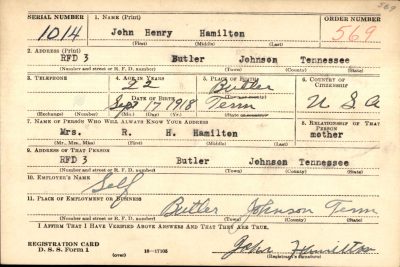 569
SERIAL NUMBER 1. NAME (Print) ORDER NUMBER
1014 John Henry Hamilton 569
(First) (Middle) (Last)
2. ADDRESS (Print)
RFD 3 Butler Johnson Tennessee
(Number and street or R. F. D. number) (Town) (County) (State)
3. TELEPHONE 4. AGE IN YEARS 5. PLACE OF BIRTH 6. COUNTRY OF CITIZENSHIP
22 Butler
DATE OF BIRTH (Town or county)
Sept 17 1918 Tenn U S A
(Exchange) (Number) (Mo.) (Day) (Yr.) (State or country)
7. NAME OF PERSON WHO WILL ALWAYS KNOW YOUR ADDRESS 8. RELATIONSHIP OF THAT PERSON
Mrs. R. H. Hamilton mother
(Mr., Mrs., Miss) (First) (Middle) (Last)
9. ADDRESS OF THAT PERSON
RFD 3 Butler Johnson Tennessee
(Number and street or R. F. D. number) (Town) (County) (State)
10. EMPLOYER'S NAME
Self
11. PLACE OF EMPLOYMENT OR BUSINESS
Butler Johnson Tenn
(Number and street or R. F. D. number) (Town) (County) (State)
I AFFIRM THAT I HAVE VERIFIED ABOVE ANSWERS AND THAT THEY ARE TRUE.
REGISTRATION CARD John Hamilton
D. S. S. Form 1 (over) 16-17105 (Registrant's signature)